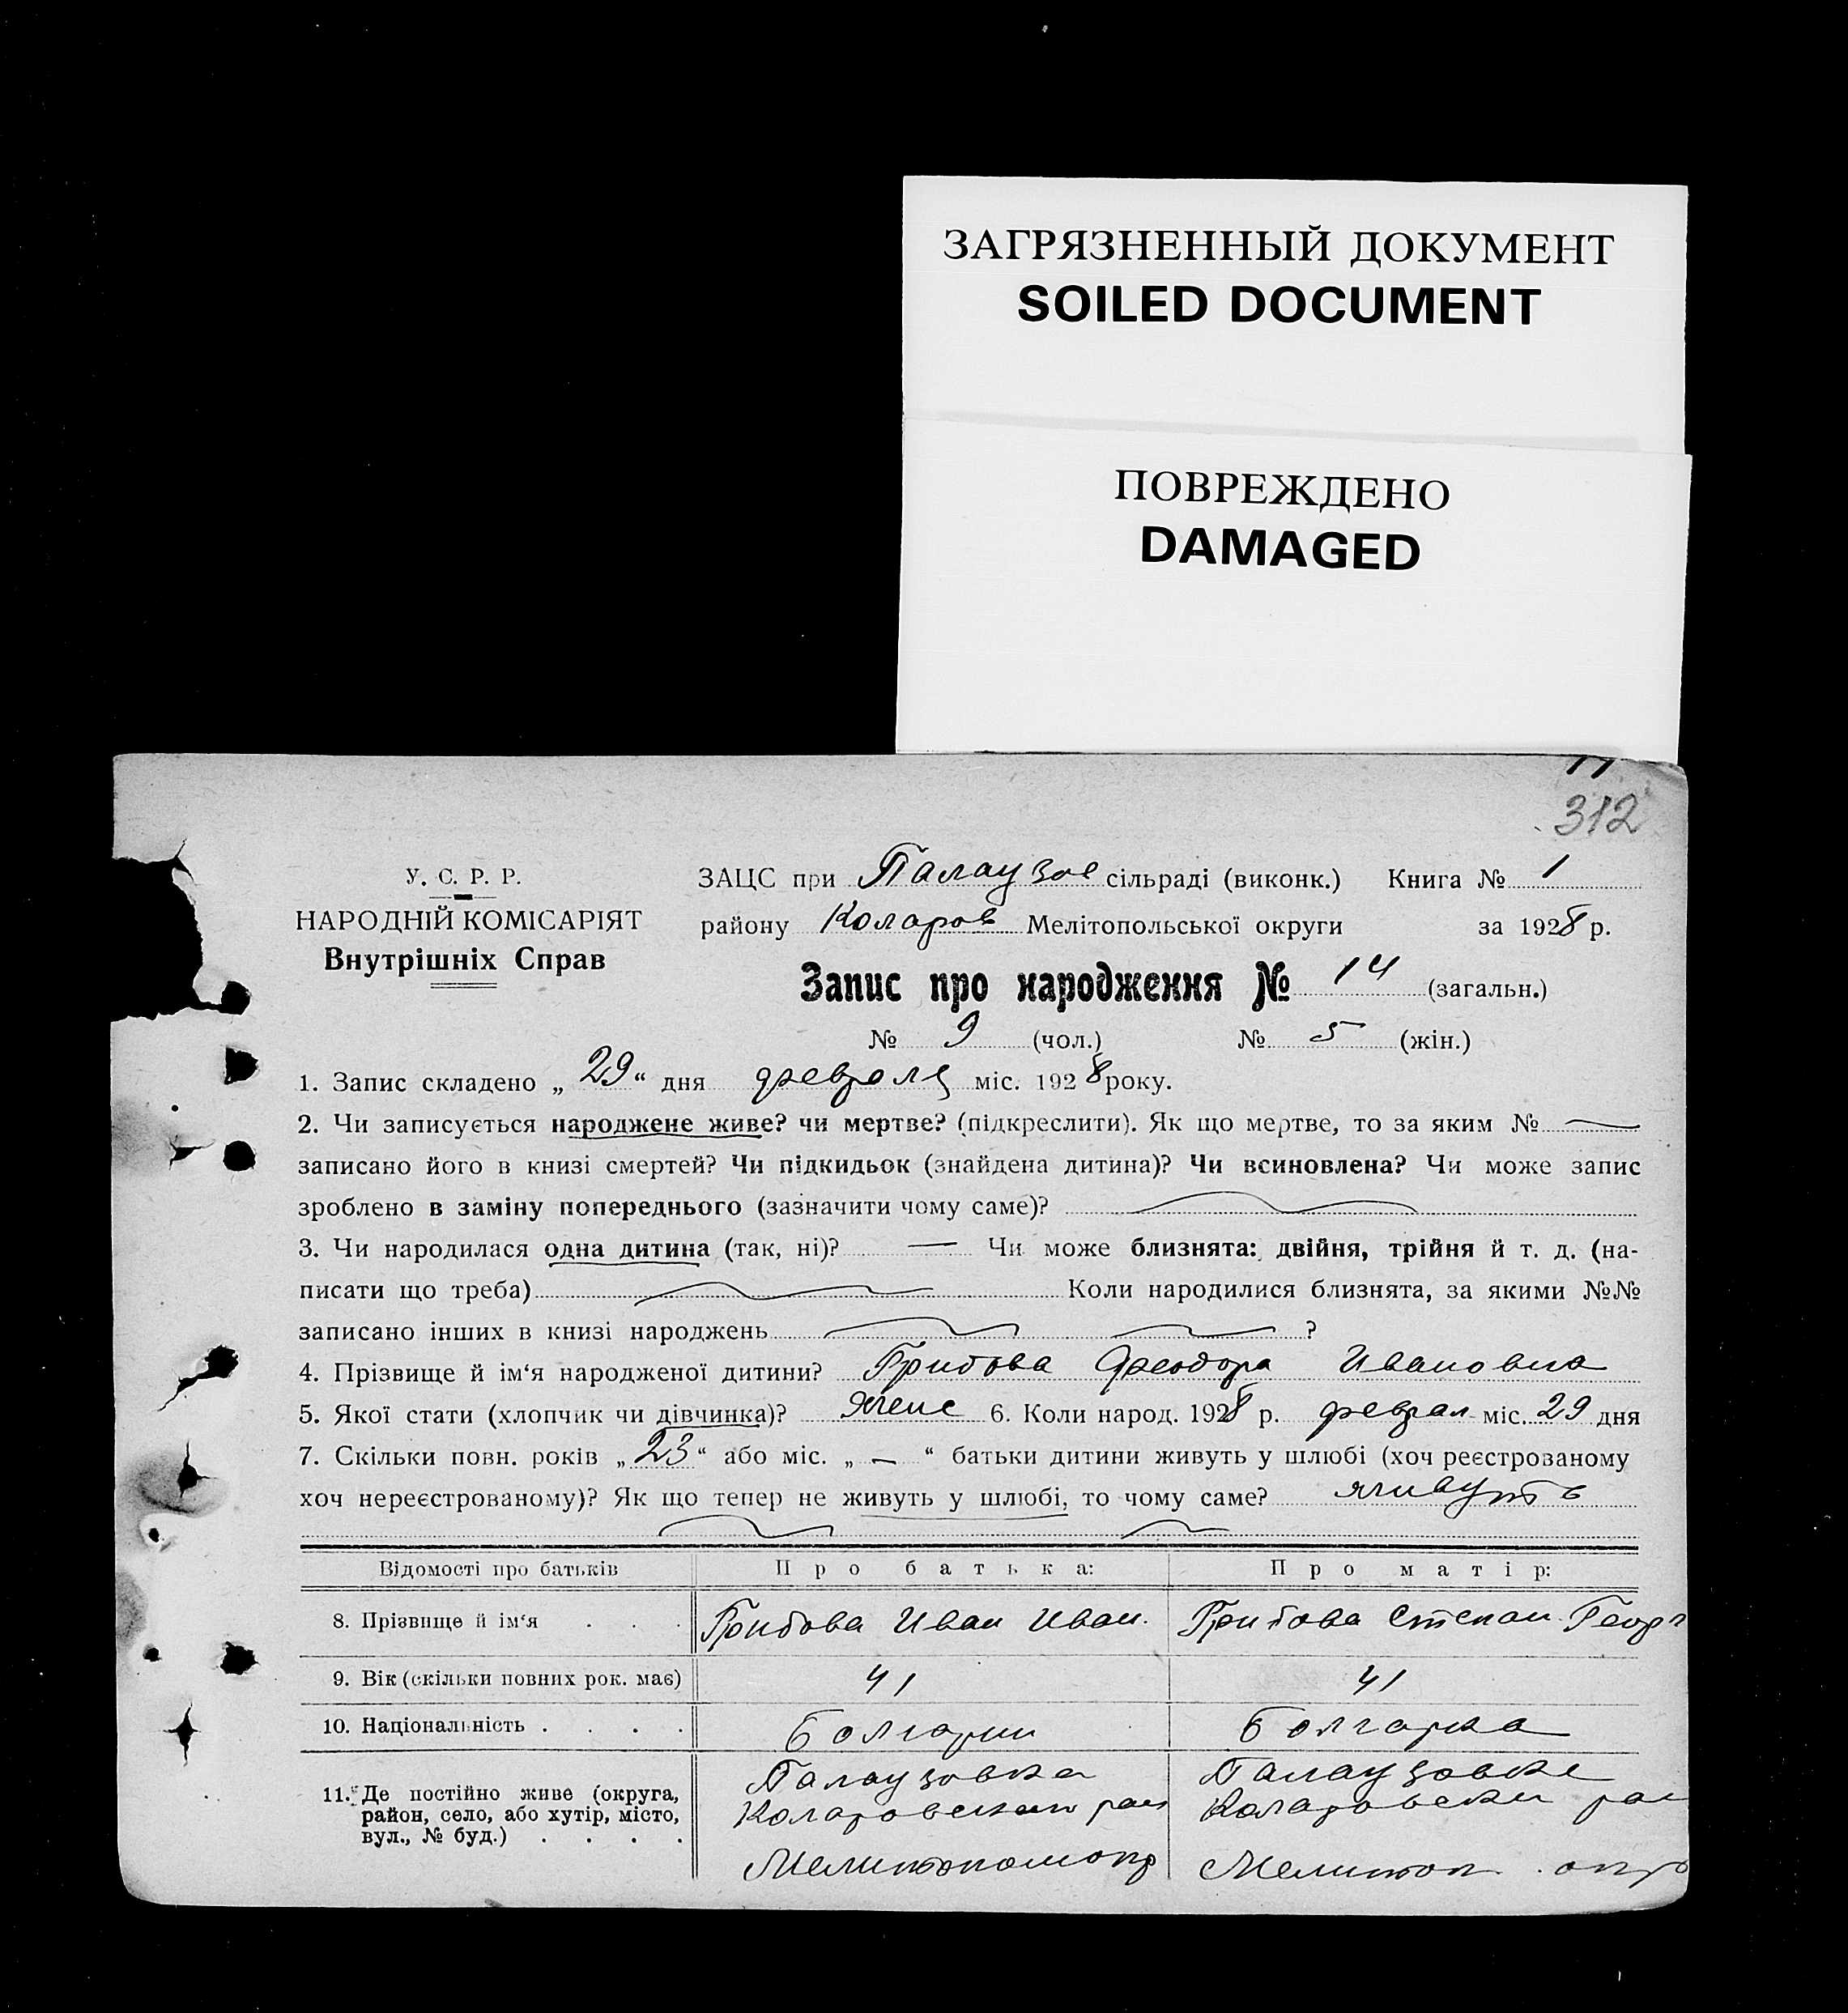 ЗАГРЯЗНЕННЫЙ ДОКУМЕНТ
SOILED DOCUMENT
ПОВРЕЖДЕНО
DAMAGED
312
У. С. Р. Р.
НАРОДНІЙ КОМІСАРІЯТ
Внутрішніх Справ
ЗАЦС при Палаузов сільраді (виконк.) Книга № 1
району Коларов Мелітопольської округи за 1928 р.
Запис про народження № 14 (загальн.)
№ 9 (чол.) № 5 (жін.)
1. Запис складено „ 29 “ дня февраля міс. 1928 року.
2. Чи записується народжене живе? чи мертве? (підкреслити). Як що мертве, то за яким № —
записано його в книзі смертей? Чи підкидьок (знайдена дитина)? Чи всиновлена? Чи може запис
зроблено в заміну попереднього (зазначити чому саме)?
3. Чи народилася одна дитина (так, ні)? — Чи може близнята: двійня, трійня й т. д. (на-
писати що треба) Коли народилися близнята, за якими №№
записано інших в книзі народжень ?
4. Прізвище й ім‘я народженої дитини? Грибова Феодора Ивановна
5. Якої стати (хлопчик чи дівчинка)? женс 6. Коли народ. 1928 р. феврал міс. 29 дня
7. Скільки повн. років „ 23 “ або міс. „ — “ батьки дитини живуть у шлюбі (хоч реєстрованому
хоч нереєстрованому)? Як що тепер не живуть у шлюбі, то чому саме? живуть
Відомості про батьків Про батька: Про матір:
8. Прізвище й ім‘я . . . Грибова Иван Иван. Грибова Степан. Георг
9. Вік (скільки повних рок. має) 41 41
10. Національність . . . . Болгарин Болгарка
11. Де постійно живе (округа, район, село, або хутір, місто, вул., № буд.) . . . .
Палаузовка Палаузовке
Коларовскан раи Коларовски раи
Мелитополь окр Мелитоп. окр